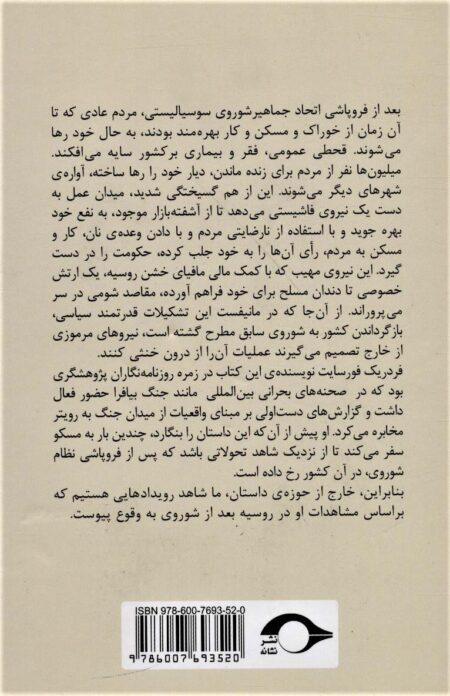 بعد از فروپاشی اتحاد جماهیرشوروی سوسیالیستی، مردم عادی که تا
آن زمان از خوراک و مسکن و کار بهره‌مند بودند، به حال خود رها
می‌شوند. قحطی عمومی، فقر و بیماری برکشور سایه می‌افکند.
میلیون‌ها نفر از مردم برای زنده ماندن، دیار خود را رها ساخته، آواره‌ی
شهرهای دیگر می‌شوند. این از هم گسیختگی شدید، میدان عمل به
دست یک نیروی فاشیستی می‌دهد تا از آشفته‌بازار موجود، به نفع خود
بهره جوید و با استفاده از نارضایتی مردم و با دادن وعده‌ی نان، کار و
مسکن به مردم، رأی آن‌ها را به خود جلب کرده، حکومت را در دست
گیرد. این نیروی مهیب که با کمک مالی مافیای خشن روسیه، یک ارتش
خصوصی تا دندان مسلح برای خود فراهم آورده، مقاصد شومی در سر
می‌پروراند. از آن‌جا که در مانیفست این تشکیلات قدرتمند سیاسی،
بازگرداندن کشور به شوروی سابق مطرح گشته است، نیروهای مرموزی
از خارج تصمیم می‌گیرند عملیات آن‌را از درون خنثی کنند.
فردریک فورسایت نویسنده‌ی این کتاب در زمره روزنامه‌نگاران پژوهشگری
بود که در صحنه‌های بحرانی بین‌المللی مانند جنگ بیافرا حضور فعال
داشت و گزارش‌های دست‌اولی بر مبنای واقعیات از میدان جنگ به رویتر
مخابره می‌کرد. او پیش از آن‌که این داستان را بنگارد، چندین بار به مسکو
سفر می‌کند تا از نزدیک شاهد تحولاتی باشد که پس از فروپاشی نظام
شوروی، در آن کشور رخ داده است.
بنابراین، خارج از حوزه‌ی داستان، ما شاهد رویدادهایی هستیم که
براساس مشاهدات او در روسیه بعد از شوروی به وقوع پیوست.
ISBN 978-600-7693-52-0
9 786007 693520
نشر
نشانه